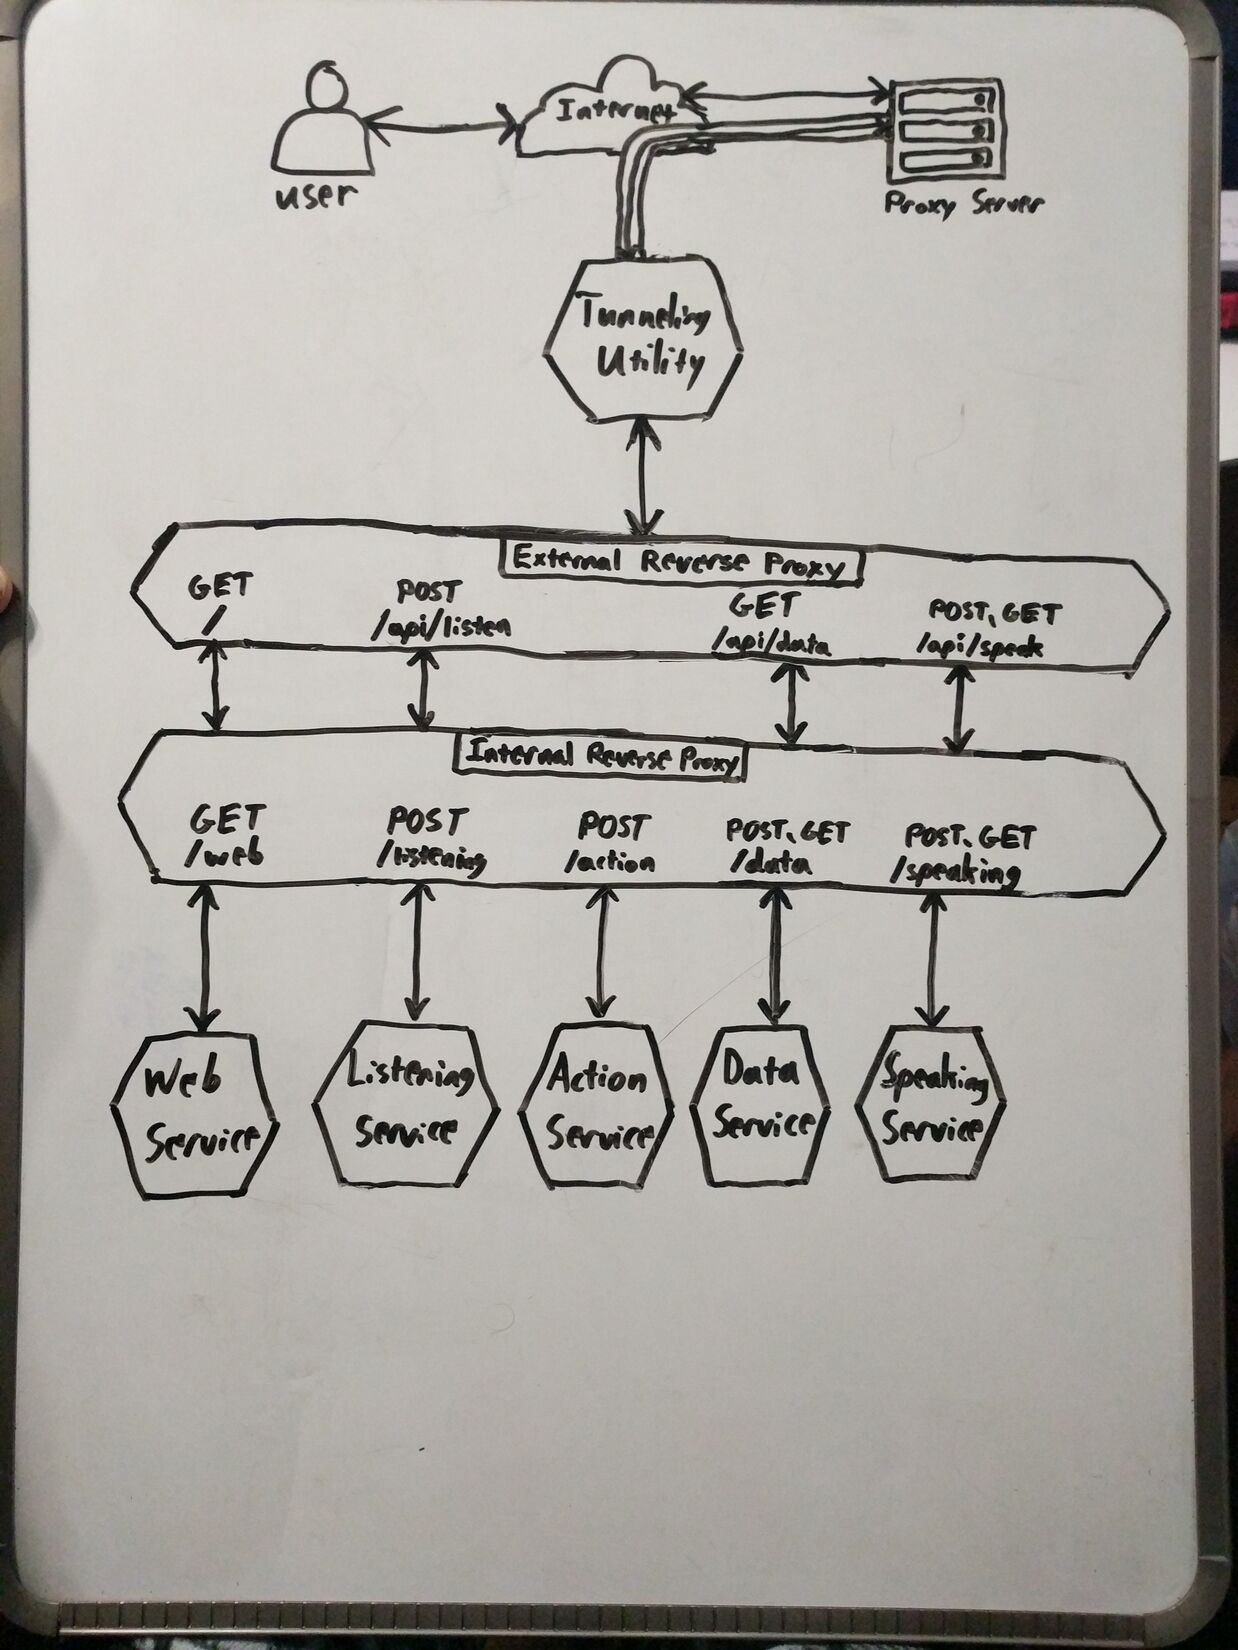 Internet
user
Proxy Server
Tunneling
Utility
External Reverse Proxy
GET
/
POST
/api/listen
GET
/api/data
POST, GET
/api/speak
Internal Reverse Proxy
GET
/web
POST
/listening
POST
/action
POST, GET
/data
POST, GET
/speaking
Web
Service
Listening
Service
Action
Service
Data
Service
Speaking
Service